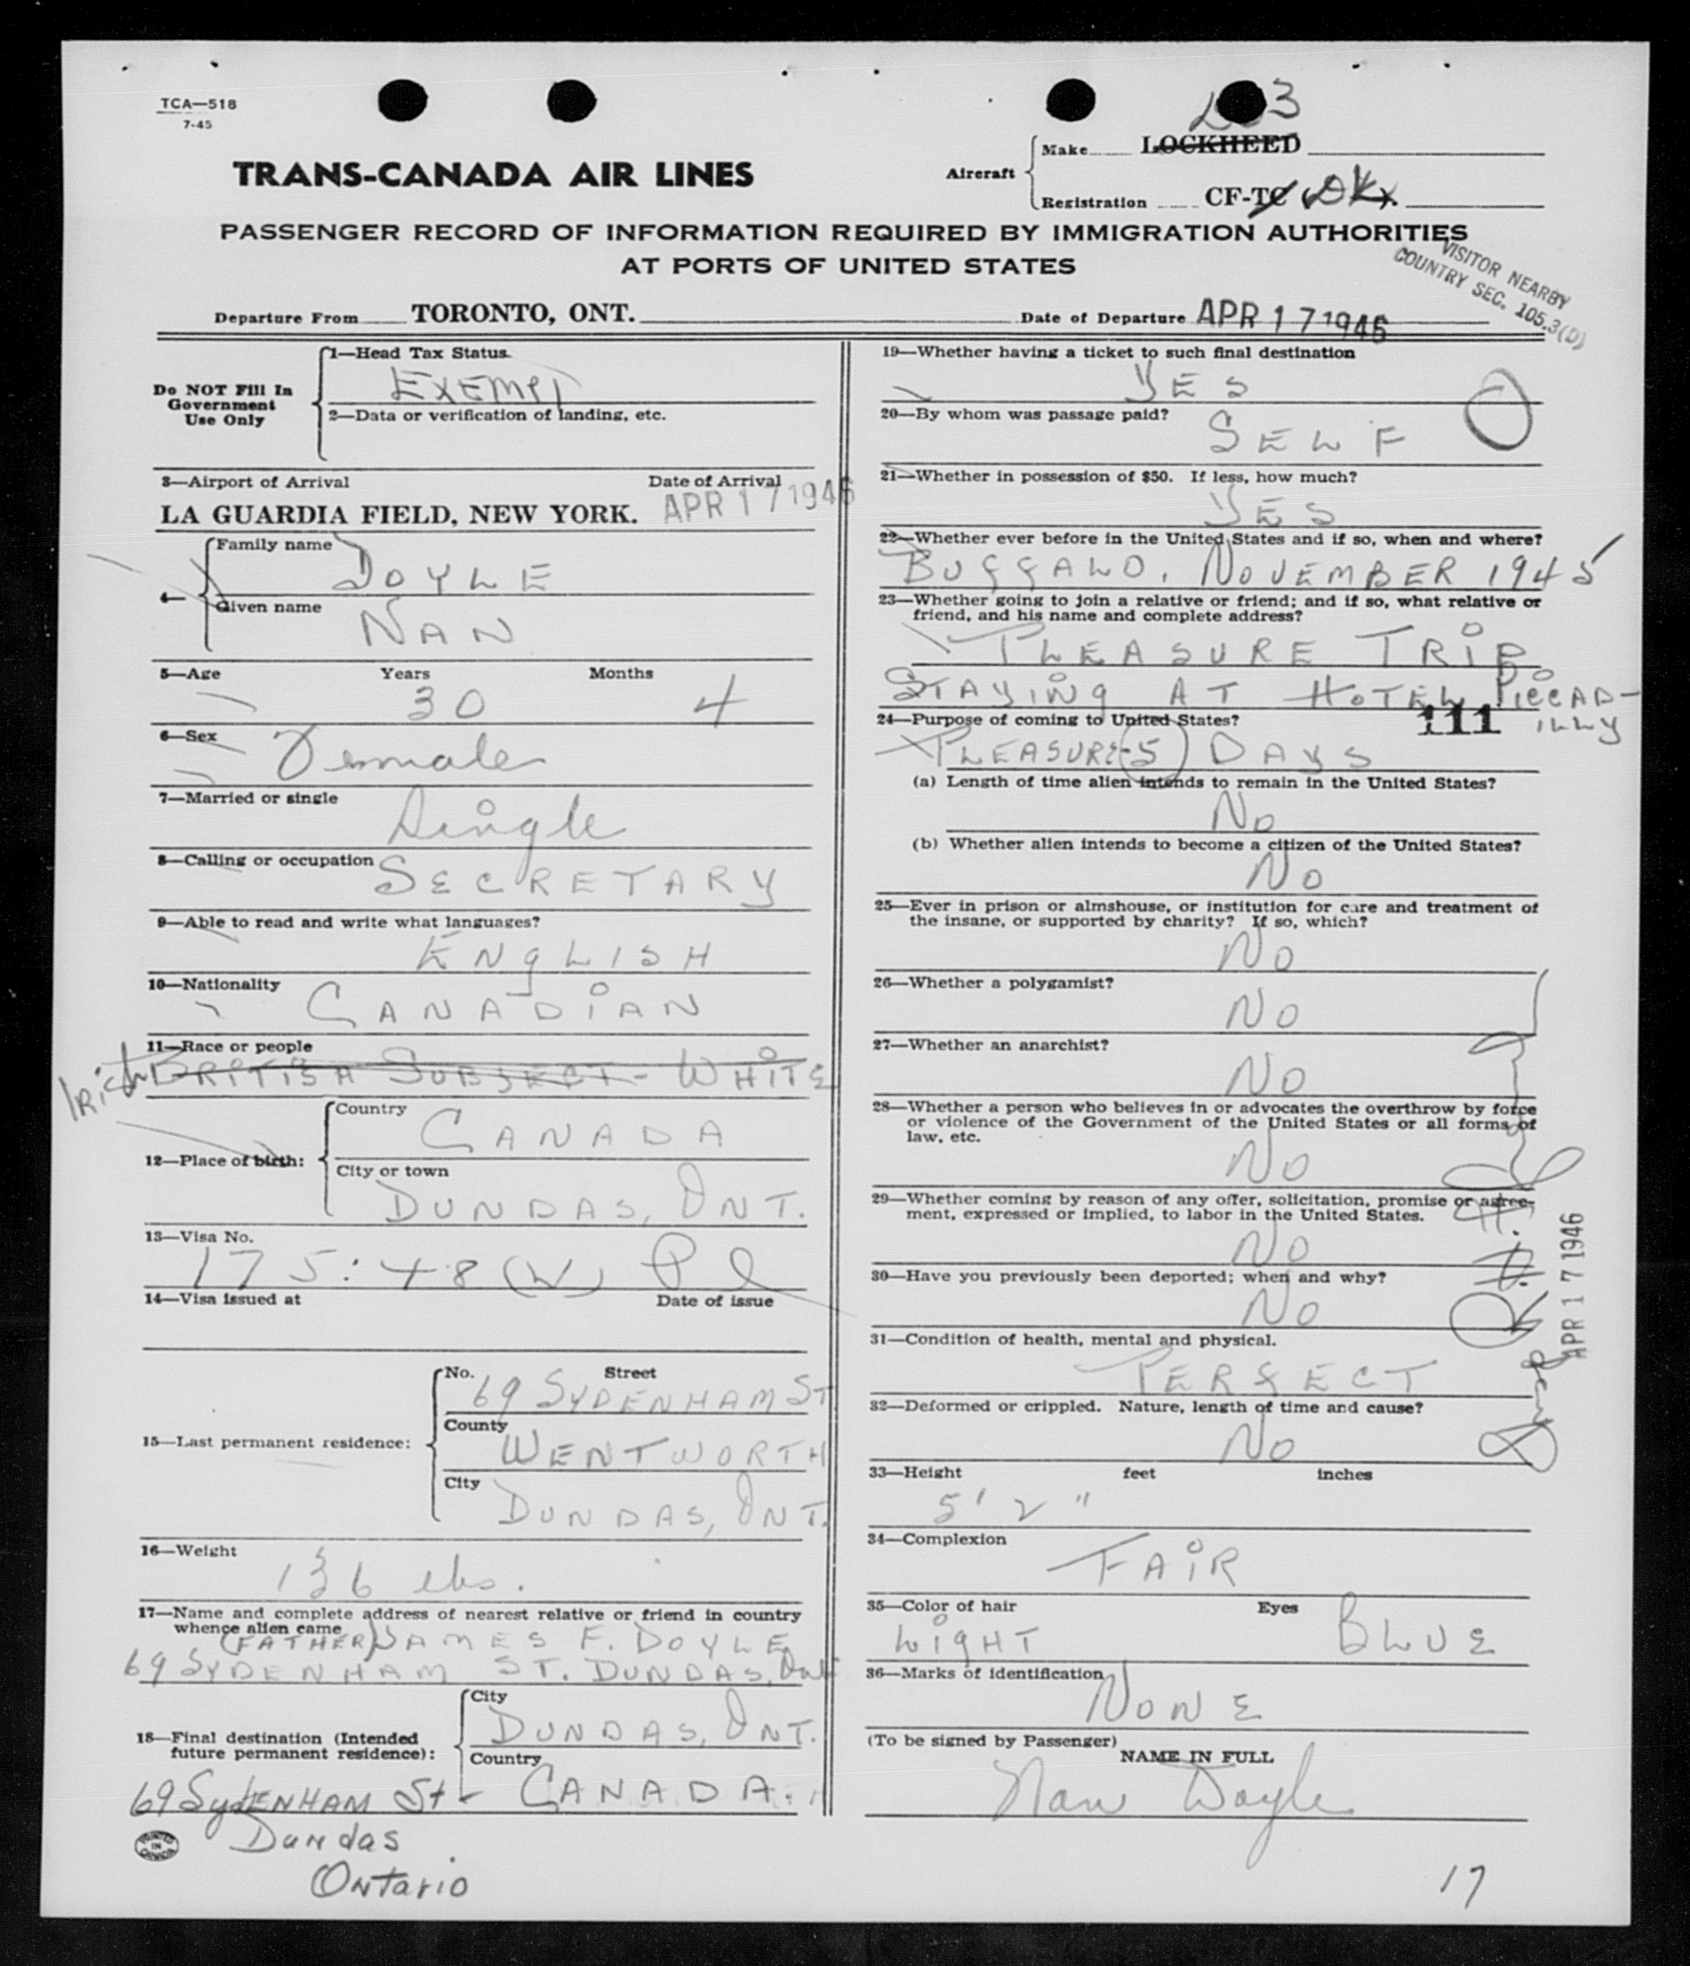 TCA—518
7-45
DC3
Aircraft
Make LOCKHEED
Registration CF-TC (DK).
TRANS-CANADA AIR LINES
PASSENGER RECORD OF INFORMATION REQUIRED BY IMMIGRATION AUTHORITIES
AT PORTS OF UNITED STATES
VISITOR NEARBY
COUNTRY SEC. 105.3(D)
Departure From TORONTO, ONT. Date of Departure APR 17 1946
Do NOT Fill In
Government
Use Only
1—Head Tax Status
EXEMPT
2—Data or verification of landing, etc.
3—Airport of Arrival Date of Arrival
LA GUARDIA FIELD, NEW YORK. APR 17 1946
4— Family name
DOYLE
Given name
NAN
5—Age Years Months
30 4
6—Sex
Female
7—Married or single
Single
8—Calling or occupation
SECRETARY
9—Able to read and write what languages?
ENGLISH
10—Nationality
CANADIAN
11—Race or people
IRish BRITISH SUBJECT - WHITE
12—Place of birth:
Country
CANADA
City or town
DUNDAS, ONT.
13—Visa No.
175:48 (W) Pl
14—Visa issued at Date of issue
15—Last permanent residence:
No. Street
69 SYDENHAM ST
County
WENTWORTH
City
DUNDAS, ONT.
16—Weight
136 lbs.
17—Name and complete address of nearest relative or friend in country
whence alien came
(FATHER) JAMES F. DOYLE
69 SYDENHAM ST. DUNDAS, Ont
18—Final destination (Intended
future permanent residence):
City
DUNDAS, ONT.
Country
CANADA.
69 SydENHAM St
Dundas
Ontario
PRINTED IN CANADA
19—Whether having a ticket to such final destination
YES
20—By whom was passage paid?
SELF
21—Whether in possession of $50. If less, how much?
YES
22—Whether ever before in the United States and if so, when and where?
BUFFALO, NOVEMBER 1945
23—Whether going to join a relative or friend; and if so, what relative or
friend, and his name and complete address?
PLEASURE TRIP
STAYING AT HOTEL PICCAD-
ILLY
111
24—Purpose of coming to United States?
PLEASURE-5 DAYS
(a) Length of time alien intends to remain in the United States?
No
(b) Whether alien intends to become a citizen of the United States?
No
25—Ever in prison or almshouse, or institution for care and treatment of
the insane, or supported by charity? If so, which?
No
26—Whether a polygamist?
No
27—Whether an anarchist?
No
28—Whether a person who believes in or advocates the overthrow by force
or violence of the Government of the United States or all forms of
law, etc.
No
29—Whether coming by reason of any offer, solicitation, promise or agree-
ment, expressed or implied, to labor in the United States.
No
30—Have you previously been deported; when and why?
No
31—Condition of health, mental and physical.
PERFECT
32—Deformed or crippled. Nature, length of time and cause?
No
33—Height feet inches
5' 2"
34—Complexion
FAIR
35—Color of hair Eyes
LIGHT BLUE
36—Marks of identification
NONE
(To be signed by Passenger)
NAME IN FULL
Nan Doyle
APR 17 1946
17